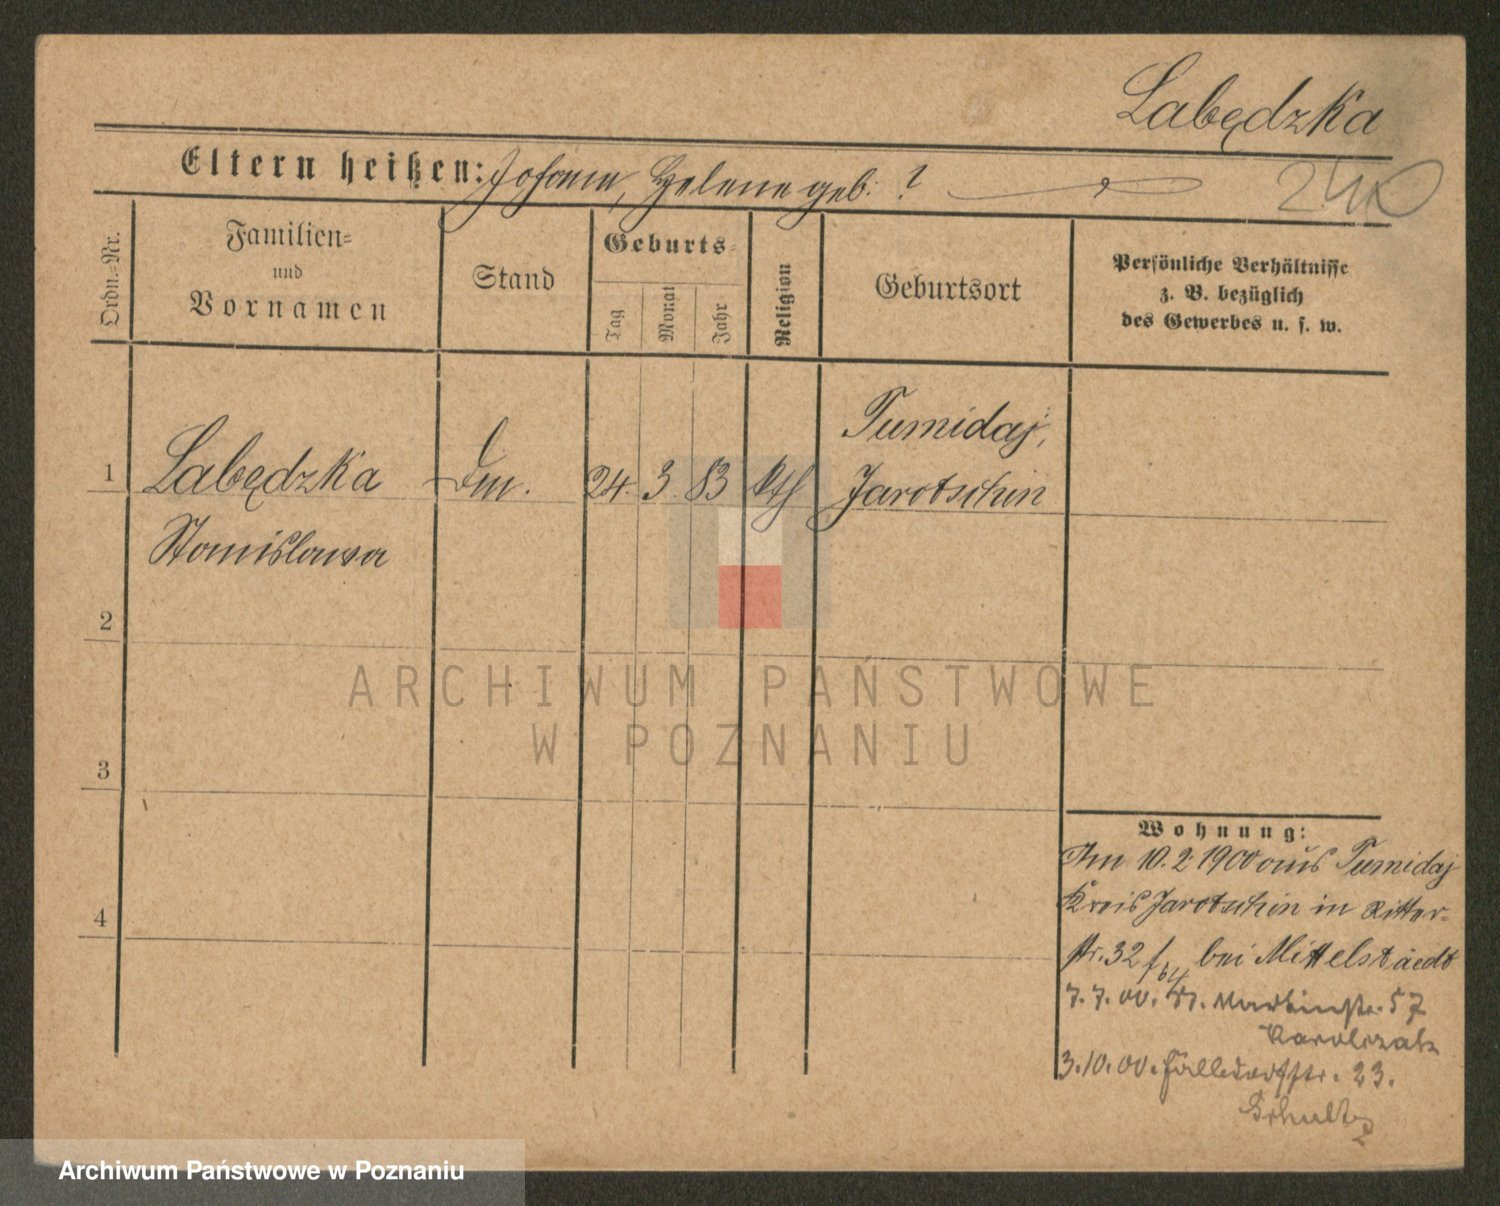 Łabędzka
Eltern heißen: Johann, Helene geb. ?
240
Ordn.-Nr.
Familien-
und
Vornamen
Stand
Geburts-
Tag
Monat
Jahr
Religion
Geburtsort
Persönliche Verhältnisse
z. B. bezüglich
des Gewerbes u. s. w.
Tumidaj,
1 Łabędzka Dm. 24. 3. 83 kth Jarotschin
Stanislawa
2
3
4
ARCHIWUM PAŃSTWOWE
W POZNANIU
Wohnung:
Am 10.2.1900 aus Tumidaj
Kreis Jarotschin in Ritter-
str. 32 bei Mittelstaedt
7.7.00. St. Martinstr. 57
3.10.00. 23.
Schultz
Archiwum Państwowe w Poznaniu